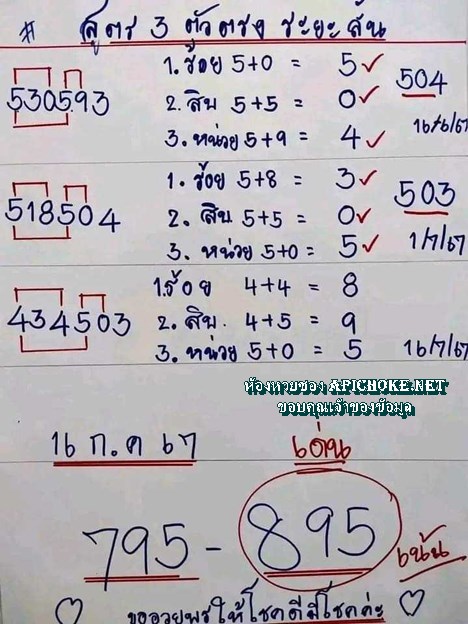 # สูตร 3 ตัวตรง ระยะสั้น
530593
1. ร้อย 5+0 = 5 ✓
2. สิบ 5+5 = 0 ✓
3. หน่วย 5+9 = 4 ✓
504
16/6/67
518504
1. ร้อย 5+8 = 3 ✓
2. สิบ 5+5 = 0 ✓
3. หน่วย 5+0 = 5 ✓
503
1/7/67
434503
1. ร้อย 4+4 = 8
2. สิบ. 4+5 = 9
3. หน่วย 5+0 = 5
16/7/67
ห้องหวยซอง APICHOKE.NET
ขอบคุณเจ้าของข้อมูล
16 ก.ค 67
เด่น
795 - 895
เน้น
♡ ขออวยพรให้โชคดีมีโชคค่ะ ♡